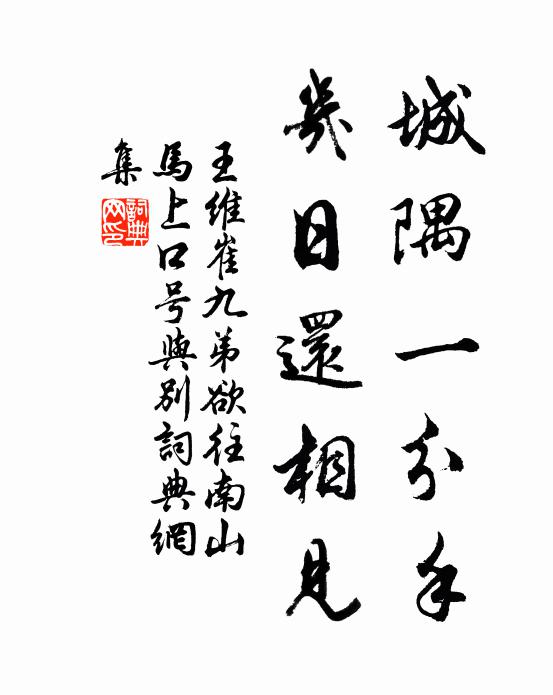 城隅一分手
幾日還相見
王維崔九弟欲往南山
馬上口号與別詞典網
集
詞典網印